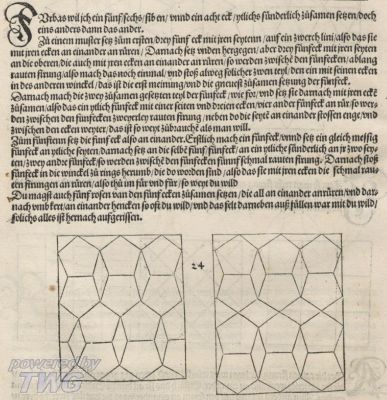 Fürbas wil ich ein fünf sechs/ siben/ vnnd ein acht eck/ ytliche sünderlich zůsamen setzen/ doch
eins anders dann das ander.
Zů einem muster setz zům ersten/ drey fünf eck mit jren seytenn/ auf ein zwerch lini/ also das sie
mit jren ecken an einander an rüren/ Darnach setz vnden hergegen/ aber drey fünfeck mit jren seyten
an die oberen/ die auch mit jren ecken an einander an rüren/ so werden zwischē den fünfecken/ ablang
rauten ... also mach das noch einmal/ vnd stoß alweg solicher zwen teyl/ den ein mit seinen ecken
in des anderen winckel/ das ist die erst meinung/ vnd die gemeist zůsamen setzung der fünfeck.
Darnach mach die zwen gesetzten teyl der fünfeck/ wie for/ vnd setz sie darnach mit jren eckē
zůsamen/ also das ein ytlich fünfeck mit einer seiten vnd dreien ecken/ vier ander fünfeck an rür/ so wer-
den zwischen den fünfecken zweyerley rauten ... neben do die seytē an einander stossen enge/ vnd
zwischen den ecken weyter/ das ist so weyt zůbrauchē als man will.
Zům fünften setz die fünf eck also an einander. Erstlich mach ein fünfeck/ vnnd setz ein gleich messig
fünfeck an ytliche seyten darnach setz an die selbē fünf fünfeck/ an ein ytliche sünderlich an jr zwo sey-
ten/ zwey andre fünfeck/ so werden zwischē den fünfecken fünff schmal rauten ... Darnach stoß
fünfeck in die winckel zů rings herumb/ die do worden sind/ also das sie mit jren ecken die schmal rau-
ten ... an rüren/ also thů im für vnd für/ so weyt du wild
Du magst auch fünf rosen van den fünfecken zůsamen setzen/ die all an einander anrüren/ vnd dar-
nach vmb ... an einander hencken so oft du wild/ vnd das felt darneben auß füllen war mit du wild/
solichs alles ist hernach aufgerissen.
24
powered by
TWG